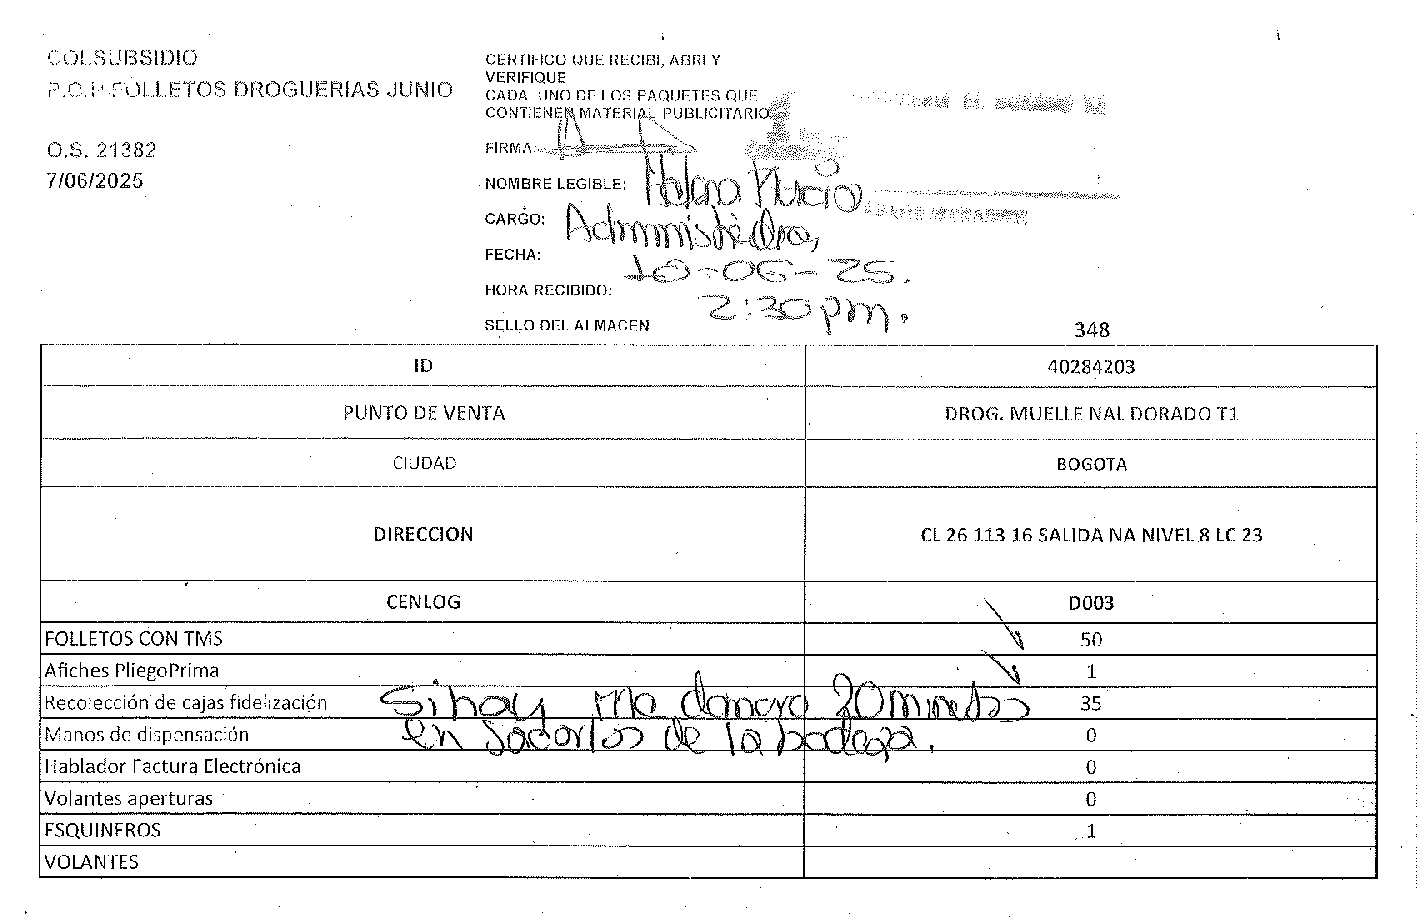 COLSUBSIDIO
P.O.P FOLLETOS DROGUERIAS JUNIO
O.S. 21382
7/06/2025
CERTIFICO QUE RECIBI, ABRI Y
VERIFIQUE
CADA UNO DE LOS PAQUETES QUE
CONTIENEN MATERIAL PUBLICITARIO
FIRMA:
NOMBRE LEGIBLE:
CARGO:
FECHA: 10-06-25.
HORA RECIBIDO: 2:30 pm.
SELLO DEL ALMACEN
348
ID 40284203
PUNTO DE VENTA DROG. MUELLE NAL DORADO T1
CIUDAD BOGOTA
DIRECCION CL 26 113 16 SALIDA NA NIVEL 8 LC 23
CENLOG D003
FOLLETOS CON TMS 50
Afiches PliegoPrima 1
Recolección de cajas fidelización Si hay Me demoro 20 minutos 35
Manos de dispensación en sacarlos de la bodega. 0
Hablador Factura Electrónica 0
Volantes aperturas 0
ESQUINEROS 1
VOLANTES